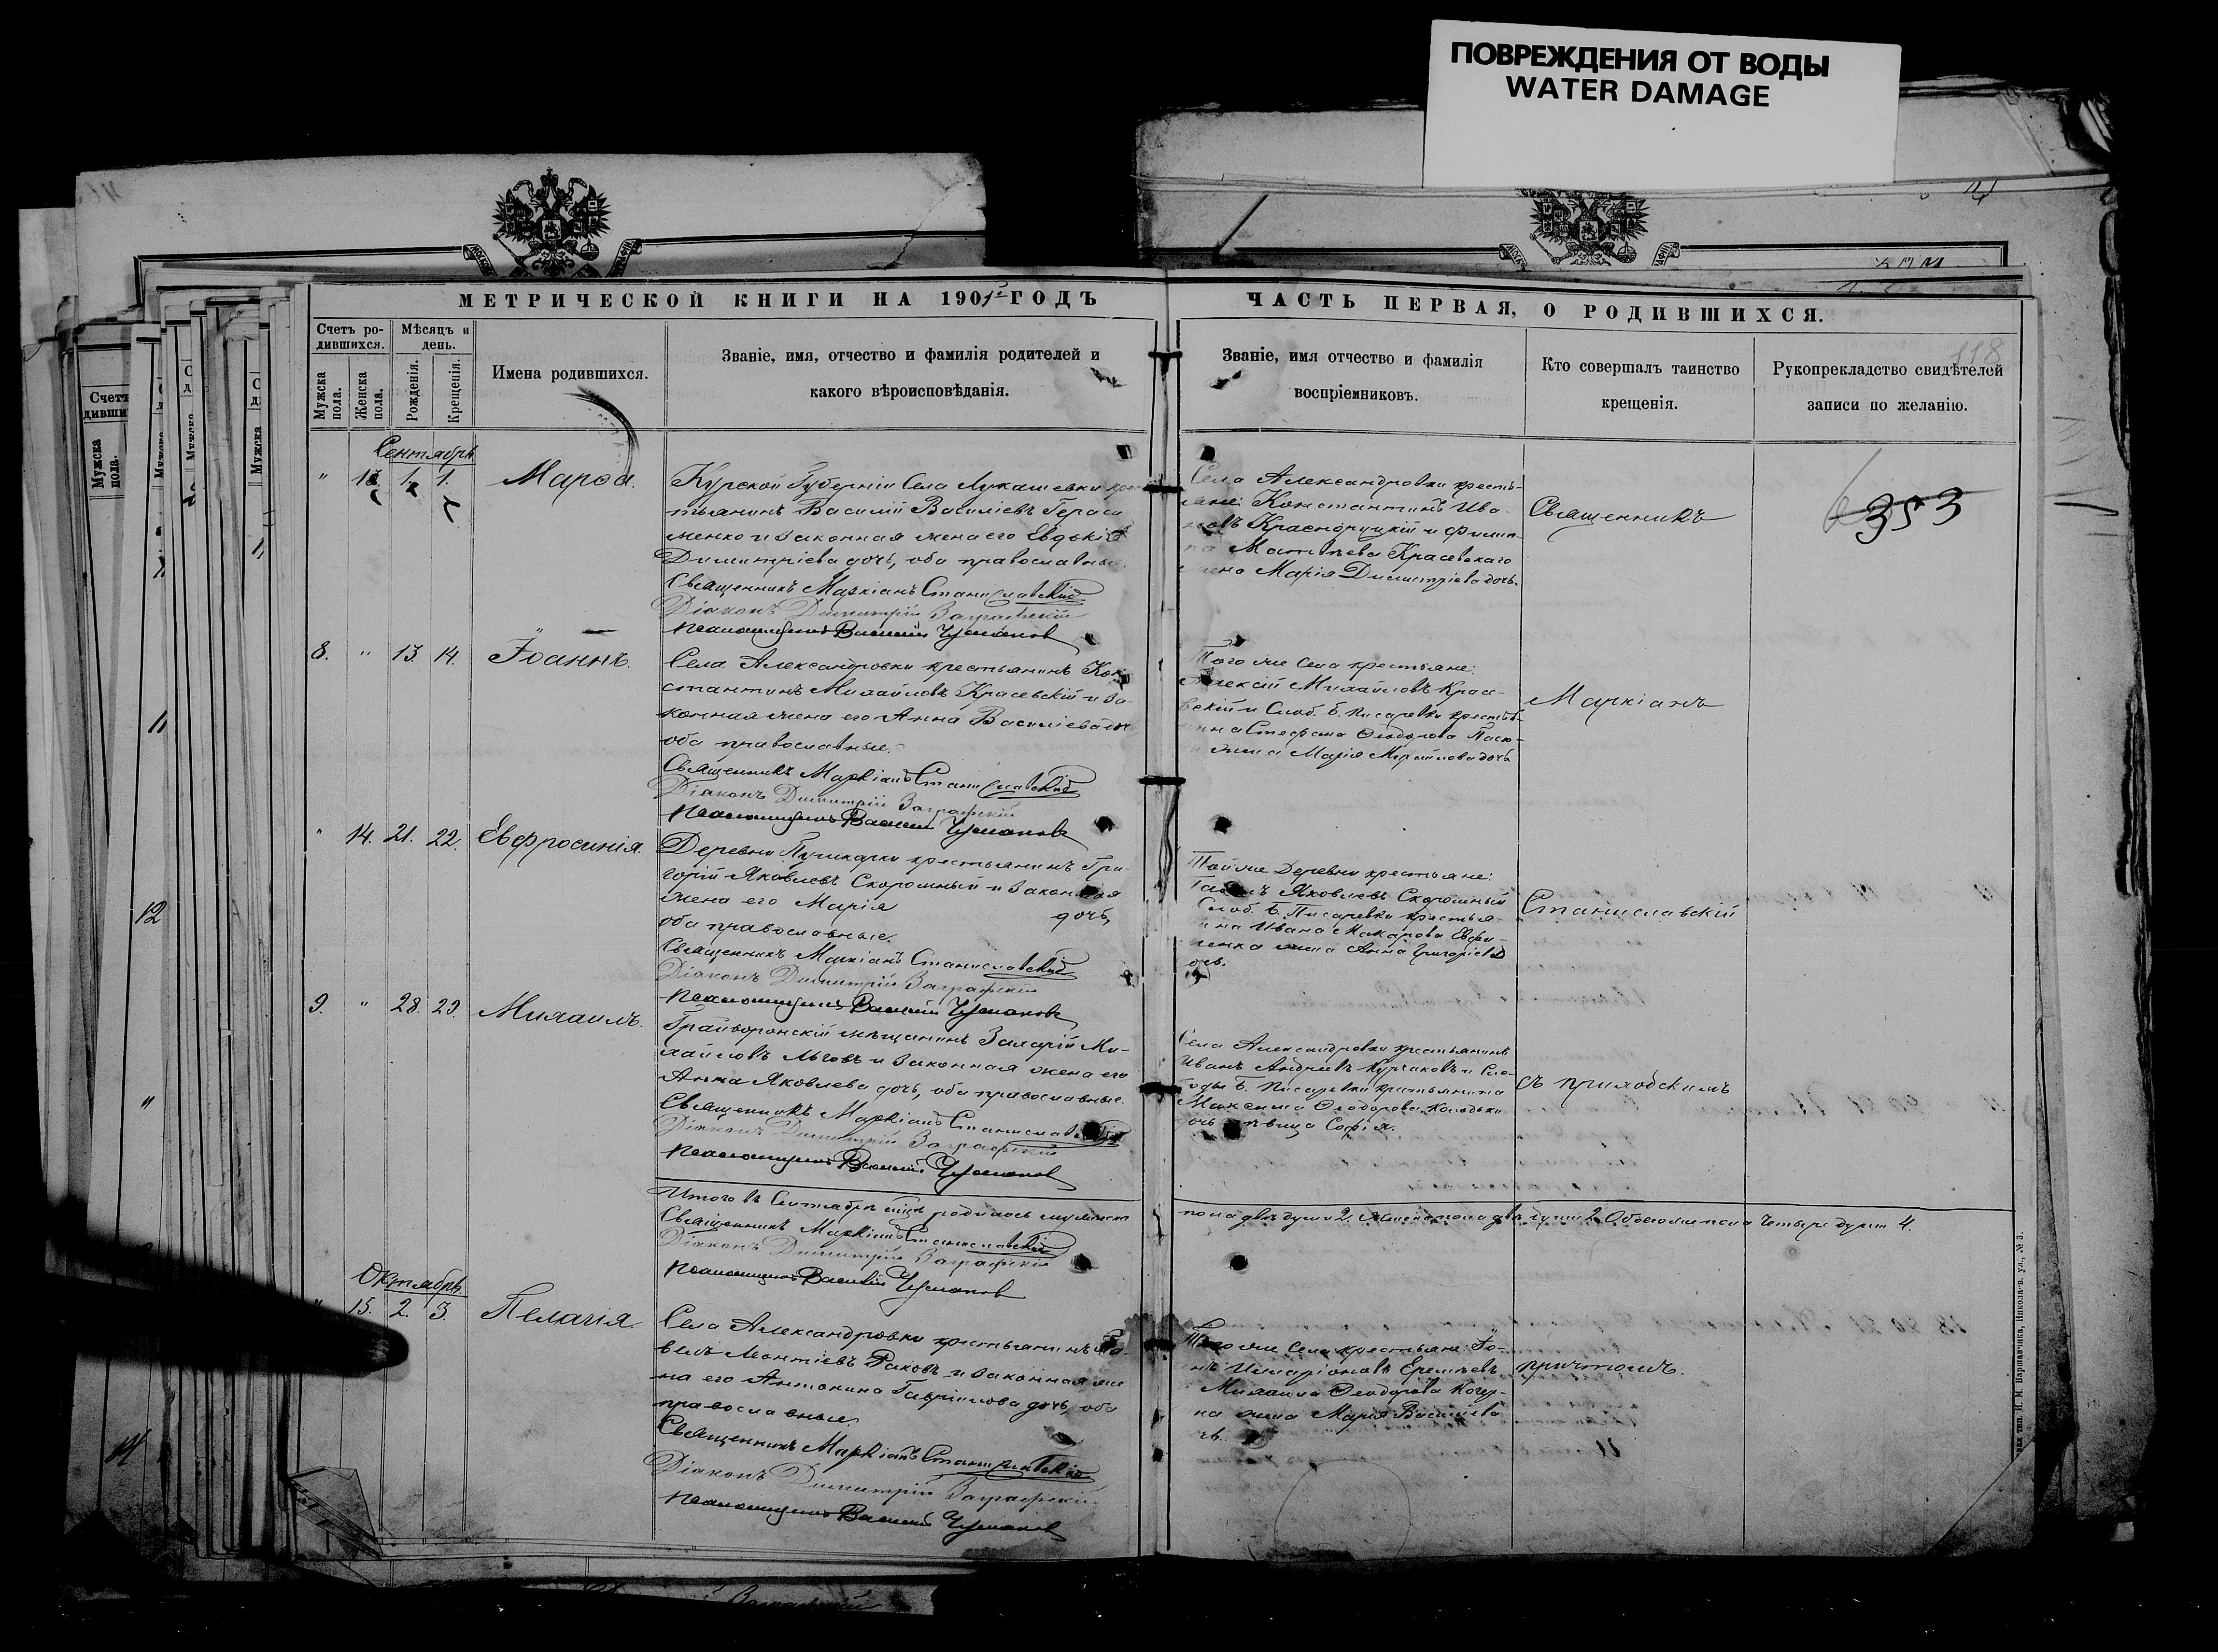 ПОВРЕЖДЕНИЯ ОТ ВОДЫ
WATER DAMAGE
МЕТРИЧЕСКОЙ КНИГИ НА 1901й ГОДЪ
Счетъ ро-
дившихся.
Мужска
пола.
Женска
пола.
Мѣсяцъ и
день.
Рожденія.
Крещенія.
Имена родившихся.
Званіе, имя, отчество и фамилія родителей и
какого вѣроисповѣданія.
Сентябрь
" 13. 1. 1. Марѳа.
Курской Губерніи Села Лукашевки кре
стьянинъ Василій Василіевъ Гераси
менко и законная жена его Евдокія
Димитріева дочь, оба православные.
Священникъ Маркіанъ Станиславскій
Діаконъ Димитрій Заграфскій
Псаломщикъ Василій Чумаков
8. " 13. 14. Іоаннъ.
Села Александровки крестьянинъ Кон
стантинъ Михайловъ Красевскій и за-
конная жена его Анна Василіева доч
оба православные.
Священникъ Маркіанъ Станиславскій
Діаконъ Димитрій Заграфскій
Псаломщикъ Василій Чумаков
" 14. 21. 22. Евфросинія.
Деревни Пушкарки крестьянинъ Гри-
горій Яковлевъ Скоромный и законная
жена его Марія дочь,
оба православные.
Священникъ Маркіанъ Станиславскій
Діаконъ Димитрій Заграфскій
Псаломщикъ Василій Чумаков
9. " 28. 29. Михаилъ.
Грайворонскій мѣщанинъ Захарій Ми-
хайловъ Льговъ и законная жена его
Анна Яковлева дочь, оба православные.
Священникъ Маркіанъ Станиславскій
Діаконъ Димитрій Заграфскій
Псаломщикъ Василій Чумаков
Итого въ Сентябрѣ мцѣ родилось мужеск
Священникъ Маркіанъ Станиславскій
Діаконъ Димитрій Заграфскій
Псаломщикъ Василій Чумаков
Октябрь.
" 15. 2. 3. Пелагія.
Села Александровки крестьянинъ Па-
велъ Леонтіевъ Раковъ и законная же
на его Антонина Гавріилова дочь, оба
православные.
Священникъ Маркіанъ Станиславскій
Діаконъ Димитрій Заграфскій
Псаломщикъ Василій Чумаков
ЧАСТЬ ПЕРВАЯ, О РОДИВШИХСЯ.
118
Званіе, имя отчество и фамилія
воспріемниковъ.
Кто совершалъ таинство
крещенія.
Рукоприкладство свидѣтелей
записи по желанію.
353
Села Александровки кресть-
яне: Константинъ Ива
новъ Краснокутскій и Филип-
па Матвѣева Красевскаго
жена Марія Димитріева дочь.
Того же Села крестьяне:
Алексій Михайловъ Красе-
вскій и Слоб. Б. Писаревки крестья-
нина Стефана Ѳеодорова
жена Марія Михайлова дочь
Той же Деревни крестьяне:
Яковлевъ Скоромный
Слоб. Б. Писаревки крестья
нина Ивана Макарова
жена Анна Григоріева
дочь.
Села Александровки крестьянинъ
Иванъ Андреевъ Курчаковъ и Сло-
боды Б. Писаревки крестьянина
Максима Ѳеодорова
дочь дѣвица Софія.
пола двѣ души 2. Женск. пола двѣ души 2. Обоего же пола четыре души 4.
Того же Села крестьяне: Іо-
ннъ Иларіоновъ Еремѣевъ
Михаила Ѳеодорова
на жена Марія Василіева
Священникъ
Маркіанъ
Станиславскій
съ приходскимъ
причтомъ.
тип. И. М. Варшавчика, Никола-в. ул., № 3.